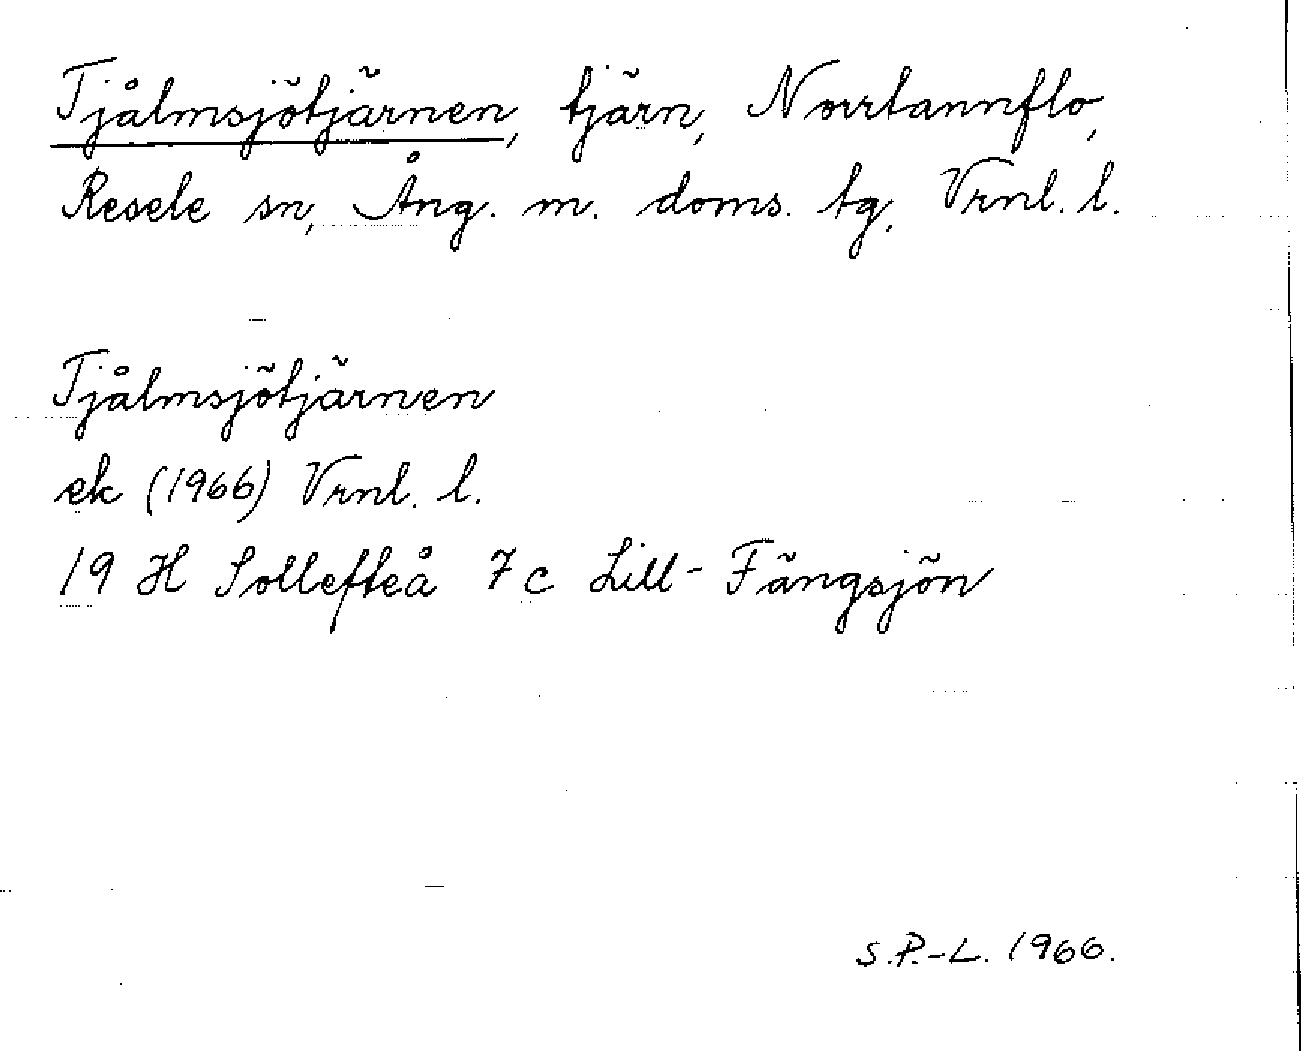 Tjålmsjötjärnen, tjärn, Norrtannflo,
Resele sn, Ång. m. doms. tg, Vrnl. l.
Tjålmsjötjärnen
ek (1966) Vrnl. l.
19 H Sollefteå 7 c Lill-Fängsjön
S.P.-L. 1966.